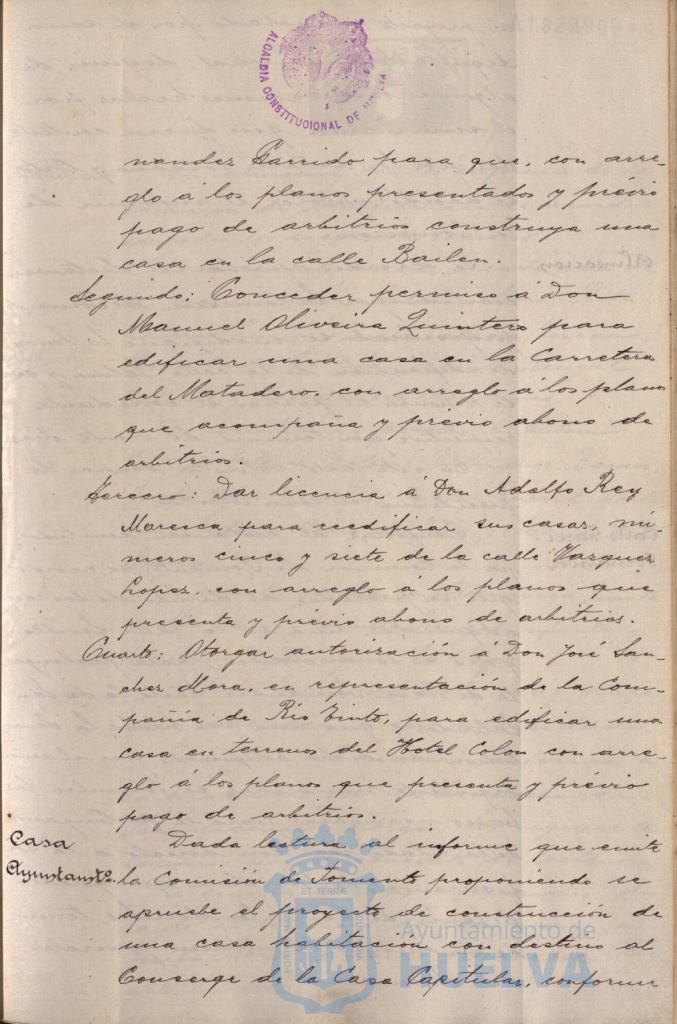 ALCALDIA CONSTITUCIONAL DE HUELVA
nandez Garrido para que, con arre-
glo á los planos presentados y prévio
pago de arbitrios construya una
casa en la calle Bailen.
Segundo: Conceder permiso á Don
Manuel Oliveira Quintero para
edificar una casa en la Carretera
del Matadero, con arreglo á los planos
que acompaña y prévio abono de
arbitrios.
Tercero: Dar licencia á Don Adolfo Rey
Maresca para reedificar sus casas, nú-
meros cinco y siete de la calle Vazquez
Lopez, con arreglo á los planos que
presenta y prévio abono de arbitrios.
Cuarto: Otorgar autorización á Don José San-
chez Mora, en representación de la Com-
pañía de Rio Tinto, para edificar una
casa en terrenos del Hotel Colon con arre-
glo á los planos que presenta y prévio
pago de arbitrios.
Casa
Ayuntamto.
Dada lectura al informe que emite
la Comisión de Fomento proponiendo se
apruebe el proyecto de construcción de
una casa habitación con destino al
Conserge de la Casa Capitular, conforme
Ayuntamiento de
HUELVA